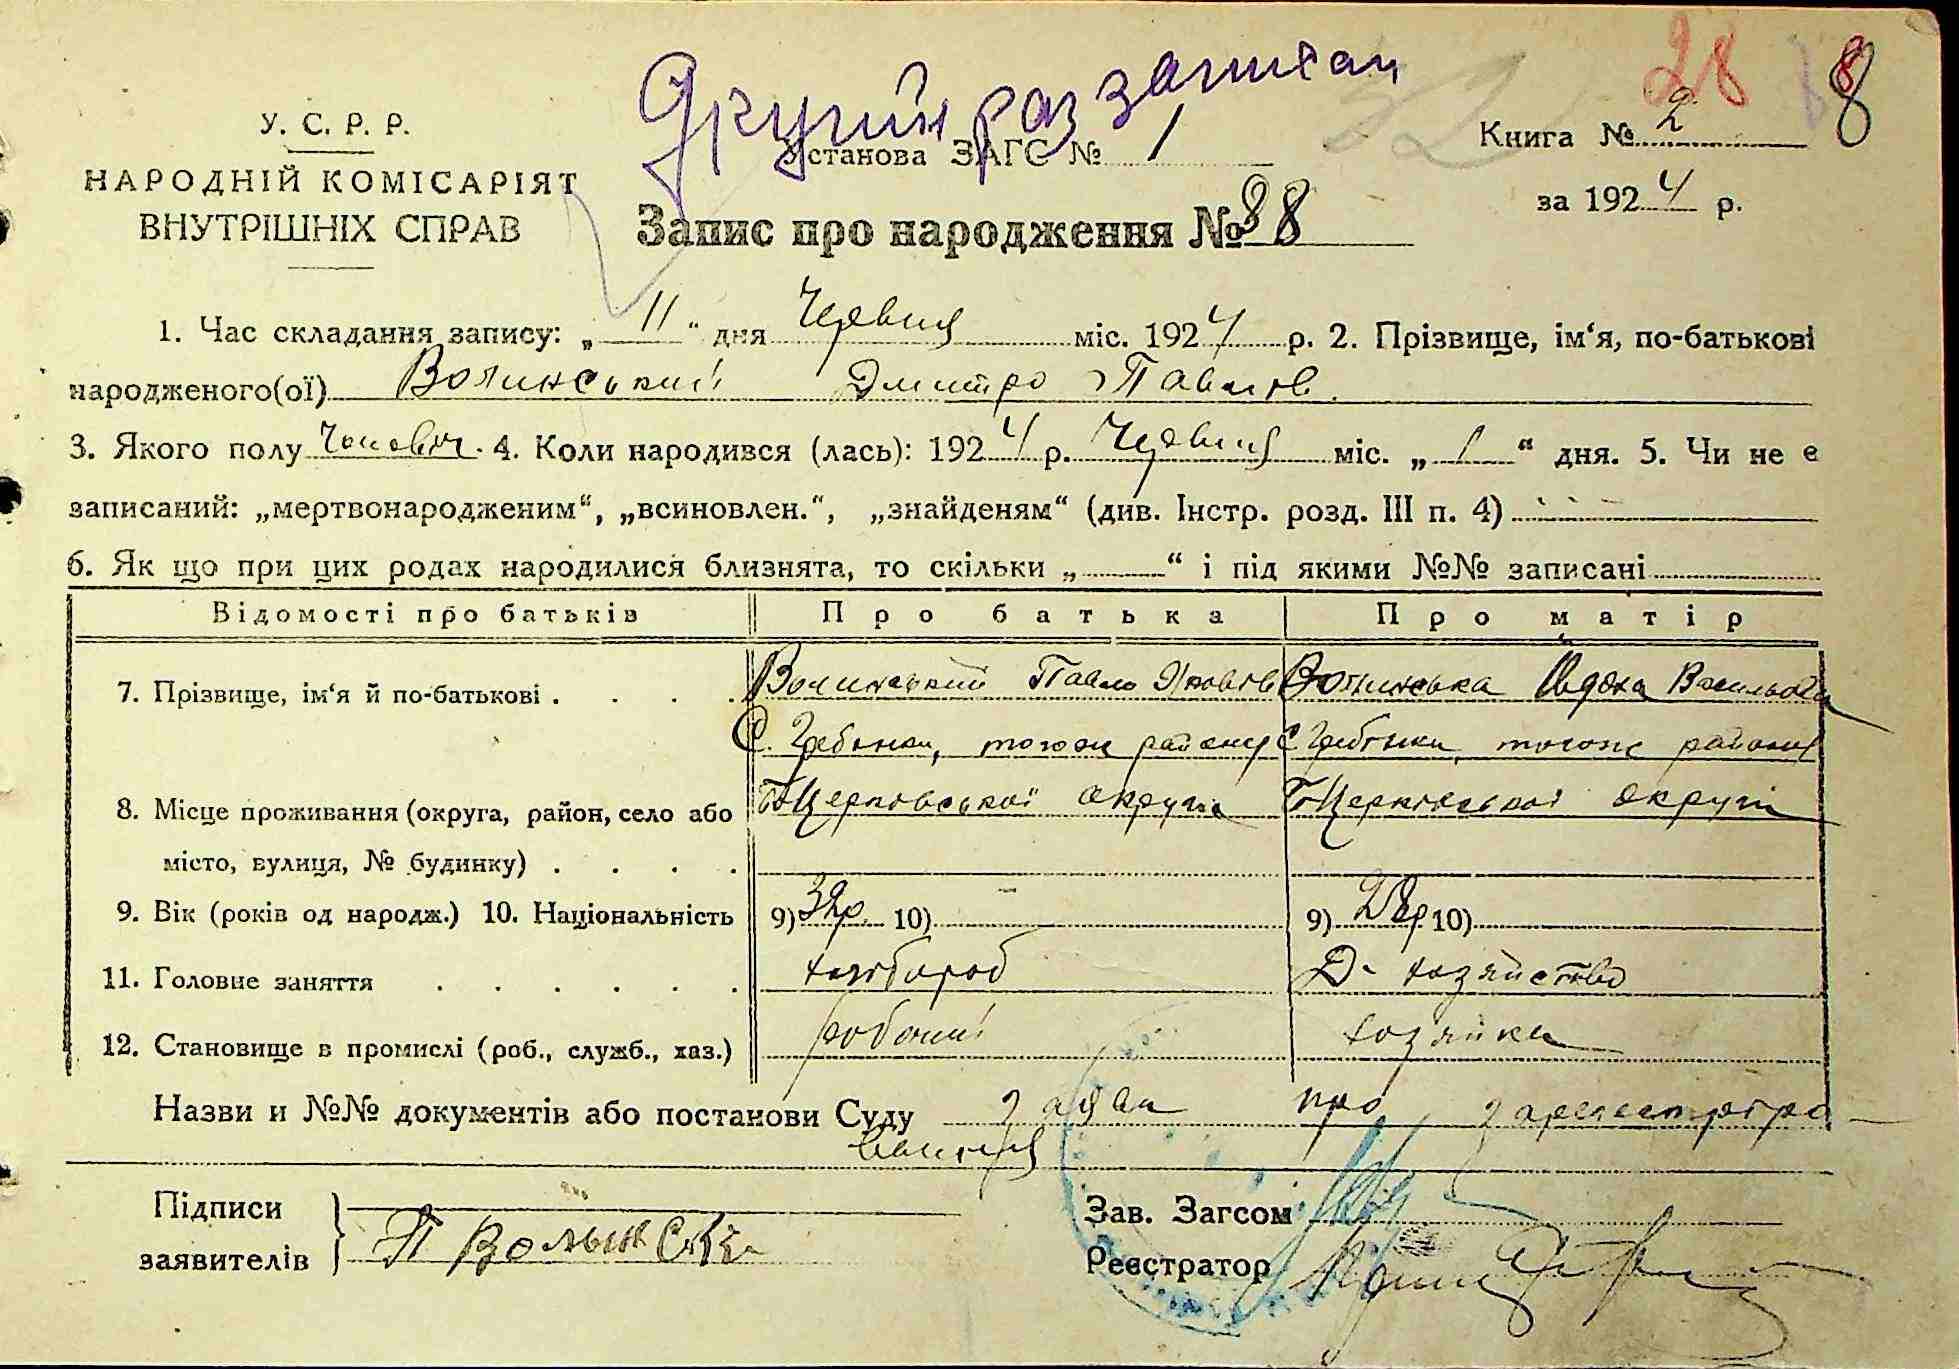 28 8 8
Другий раз записан
У. С. Р. Р.
НАРОДНІЙ КОМІСАРІЯТ
ВНУТРІШНІХ СПРАВ
Установа ЗАГС № 1
Книга № 2
за 1924 р.
Запис про народження № 88
1. Час складання запису: „11“ дня Червня міс. 1924 р. 2. Прізвище, ім‘я, по-батькові
народженого(ої) Волинський Дмитро Павлов.
3. Якого полу чоловіч. 4. Коли народився (лась): 1924 р. Червня міс. „1“ дня. 5. Чи не є
записаний: „мертвонародженим“, „всиновлен.“, „знайденям“ (див. Інстр. розд. III п. 4)
6. Як що при цих родах народилися близнята, то скільки „ “ і під якими №№ записані
Відомості про батьків Про батька Про матір
7. Прізвище, ім‘я й по-батькові . . . . Волинський Павло Яковів Волинська Овдоха Васильовна
С. Гребінки, тогож району С. Гребінки, тогож району
8. Місце проживання (округа, район, село або Б-Церківської округи Б-Церківської округи
місто, вулиця, № будинку) . . . .
9. Вік (років од народж.) 10. Національність 9) 32р. 10) 9) 28р 10)
11. Головне заняття . . . . . . хлібороб Д- хозяйство
12. Становище в промислі (роб., служб., хаз.) робочий хозяйка
Назви и №№ документів або постанови Суду заява про зареєстріро-
вання
Підписи
заявителів П Волынски
Зав. Загсом
Реєстратор